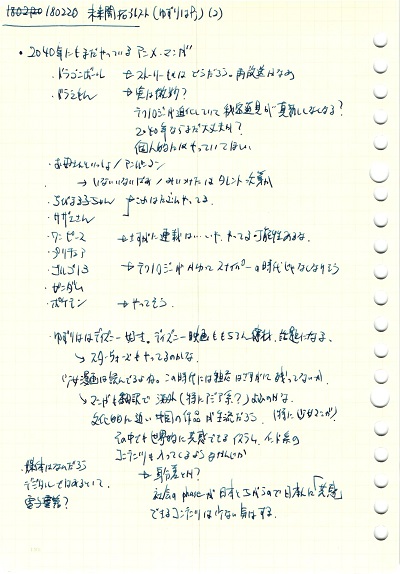 180220 未来開拓テスト(ゆずりは)(2)
・2040年にもまだやっているアニメ・マンガ
・ドラゴンボール →ストーリー的にはどうだろう。再放送はなあ
・ドラえもん →実は微妙?
テクノロジーが進化していて秘密道具が夏
2040年ならまだ大丈夫か?
個人的にはやっていてほしい
・おかあさんといっしょ/アンパンマン
→いないいないばあ/みいつけたはタレント次第か
・ちびまる子ちゃん
・サザエさん →このはたぶんやってる
・ワンピース →さすがに連載は…いや、やってる可能性あるな
・プリキュア
・ゴルゴ13 →テクノロジーが スナイパーの時代じゃなくなりそう
・ガンダム
・ポケモン →やってそう
ゆずりははディズニー好き。ディズニー映画ももちろん 話題になる。
↳スターウォーズもやってるのかな
漫画は読んでるよね。この時代には 雑誌はさすがに残ってないか
↳マンガも翻訳で海外(特にアジア系?)
文化的に近い中国の作品が主流だろう(特に少女マンガ)
その中でも世界的に共感できるイスラム、インド系の
コンテンツも入ってくるような
→身分差とか?
社会のphaseが日本とちがうので日本人に「共感」
できるコンテンツは少ない気はする。
・媒体はなんだろう
デジタルではあるとして、
電子書籍?